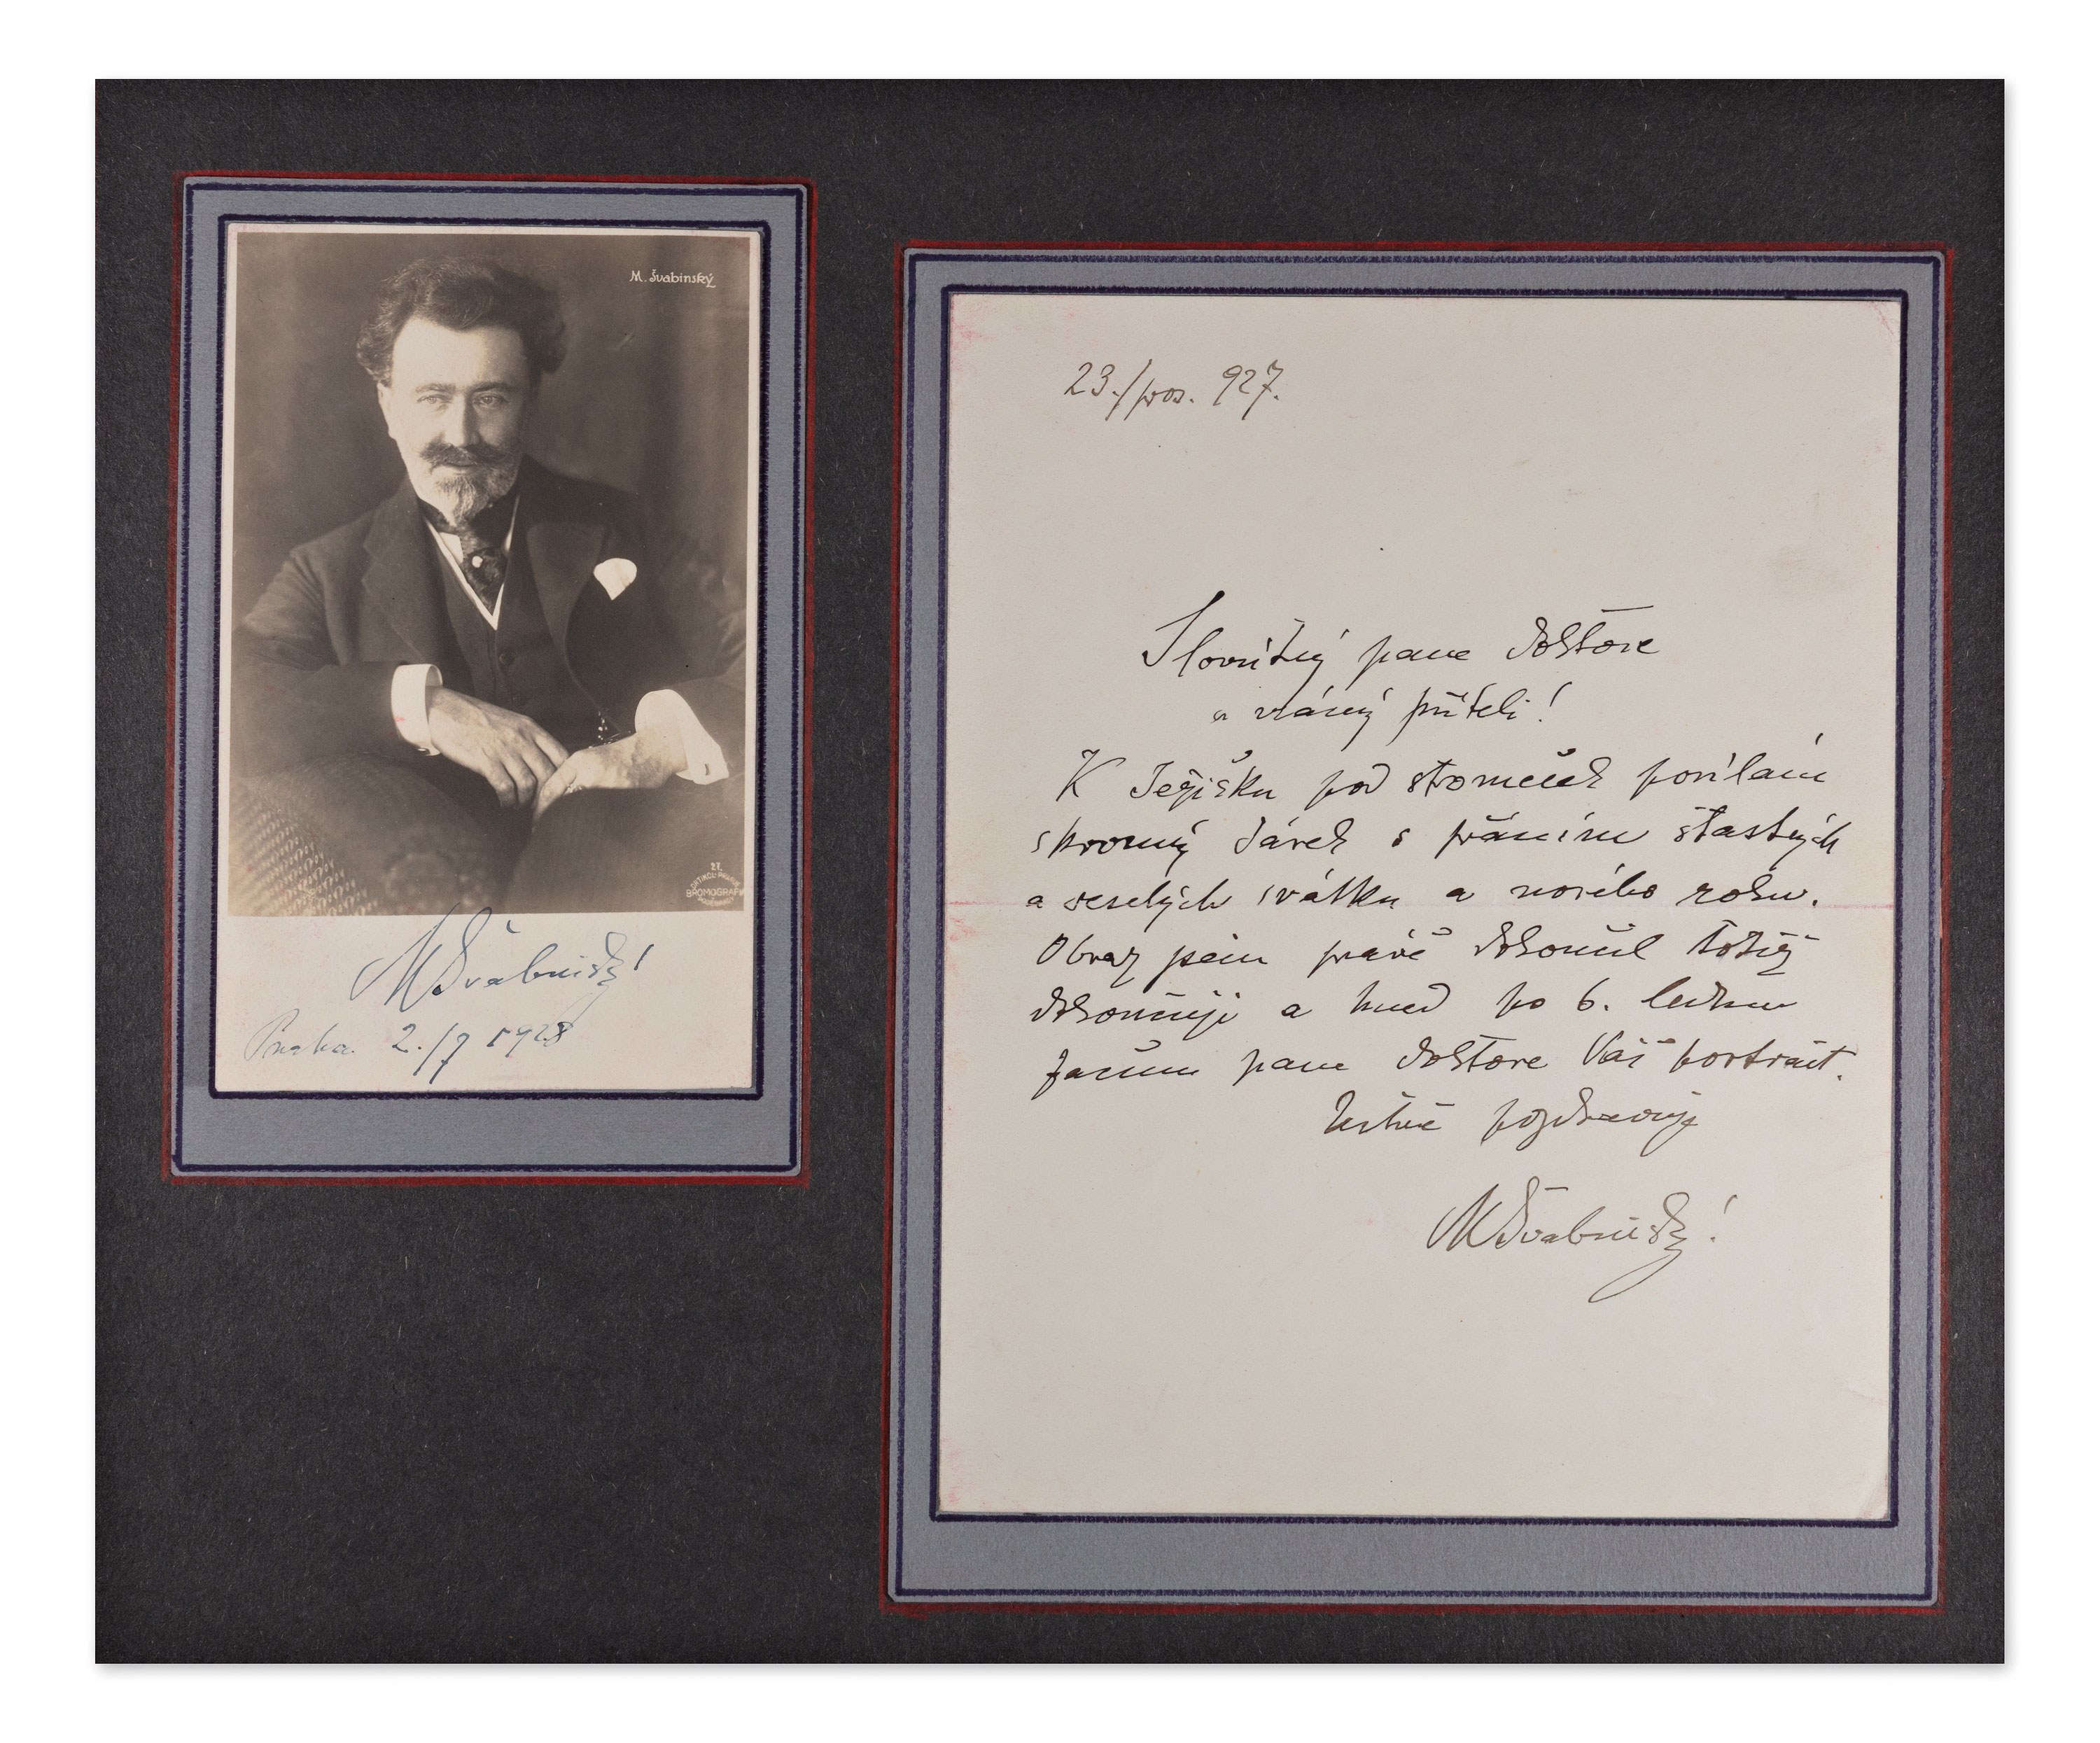 M. Švabinský
27.
BROMOGRAFIA
MŠvabinský!
Praha. 2./7 1928
23./pros. 927.
Slovutný pane doktore
a vzácný příteli!
K Ježíšku pod stromeček posílám
skromný dárek s přáním šťastných
a veselých svátku a nového roku.
Obraz jsem právě dokončil totiž
dokončuji a hned po 6. lednu
začnu pane doktore Váš portrait.
Uctivě pozdravuje
MŠvabinský!